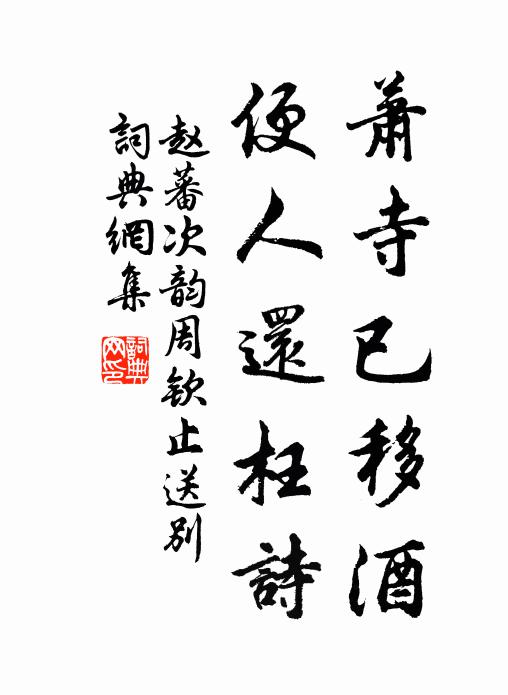 蕭寺已移酒
便人還枉詩
赵蕃次韵周钦止送别
詞典網集
詞典网印